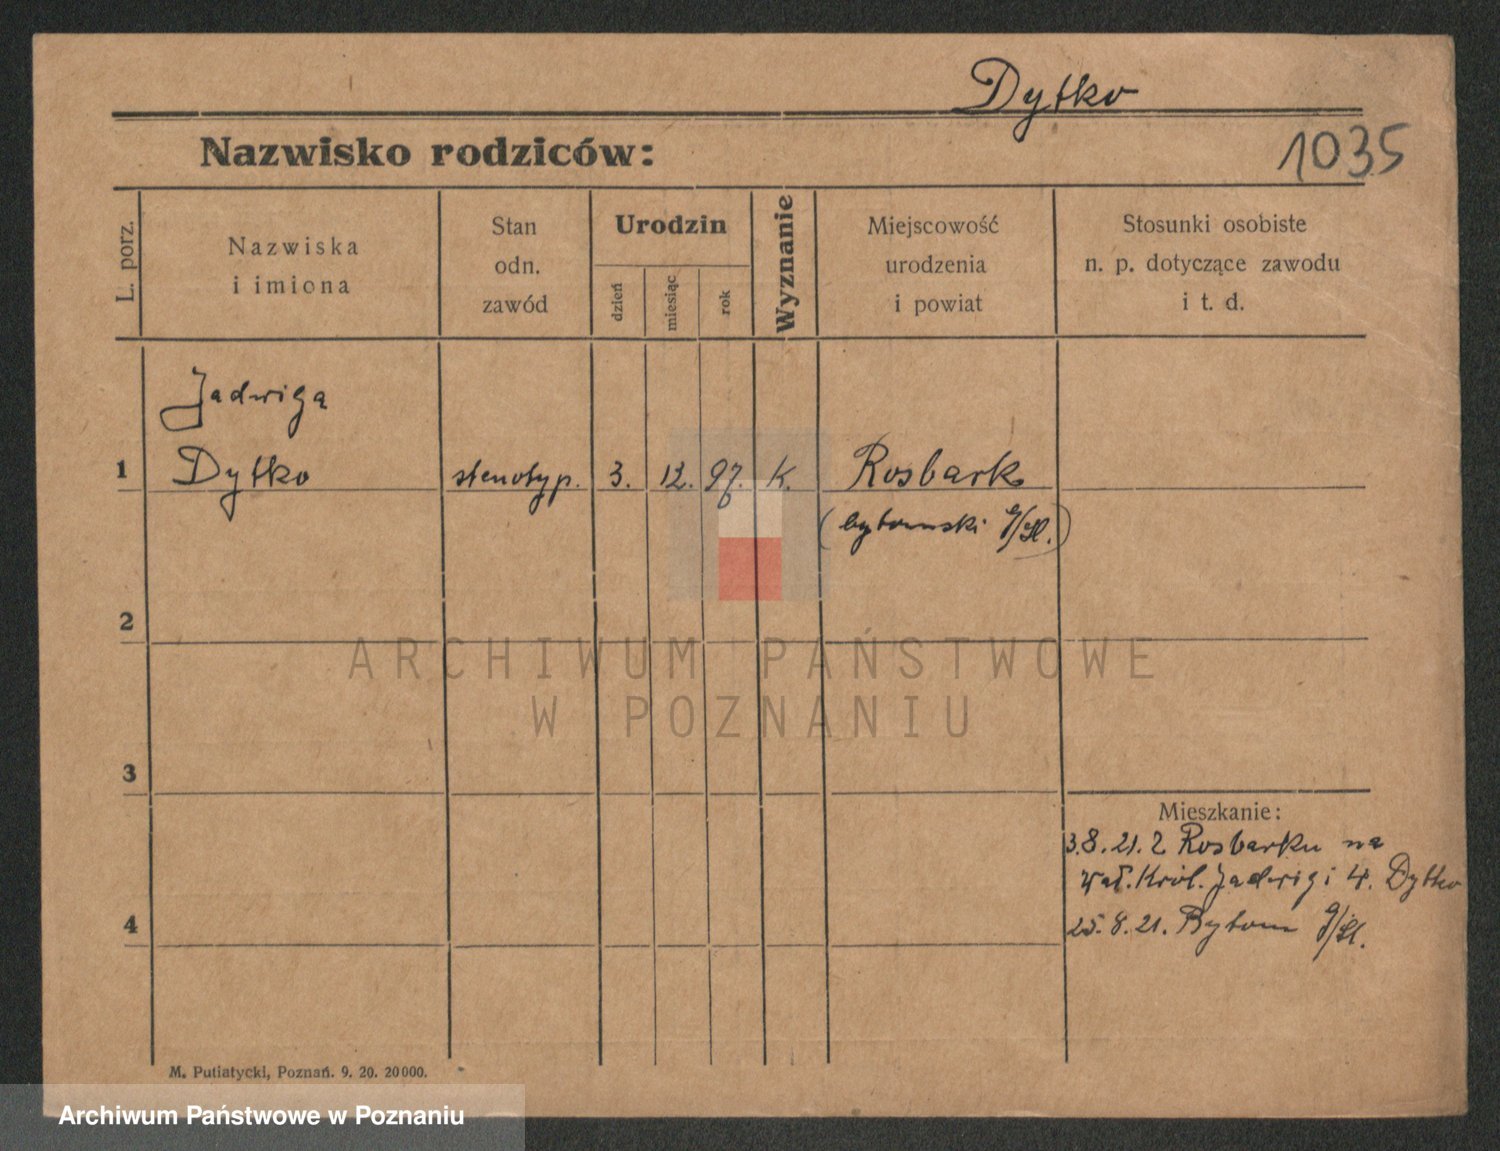 Dytko
1035
Nazwisko rodziców:
L. porz.
Nazwiska
i imiona
Stan
odn.
zawód
Urodzin
dzień
miesiąc
rok
Wyznanie
Miejscowość
urodzenia
i powiat
Stosunki osobiste
n. p. dotyczące zawodu
i t. d.
Jadwiga
1 Dytko stenotyp. 3. 12. 97. K. Rosbark
(bytomski G/Śl.)
2
3
4
Mieszkanie:
3.8.21. z Rosbarku na
Wał. Król. Jadwigi 4. Dytko
25.8.21. Bytom G/Śl.
M. Putiatycki, Poznań. 9. 20. 20000.
ARCHIWUM PAŃSTWOWE
W POZNANIU
Archiwum Państwowe w Poznaniu